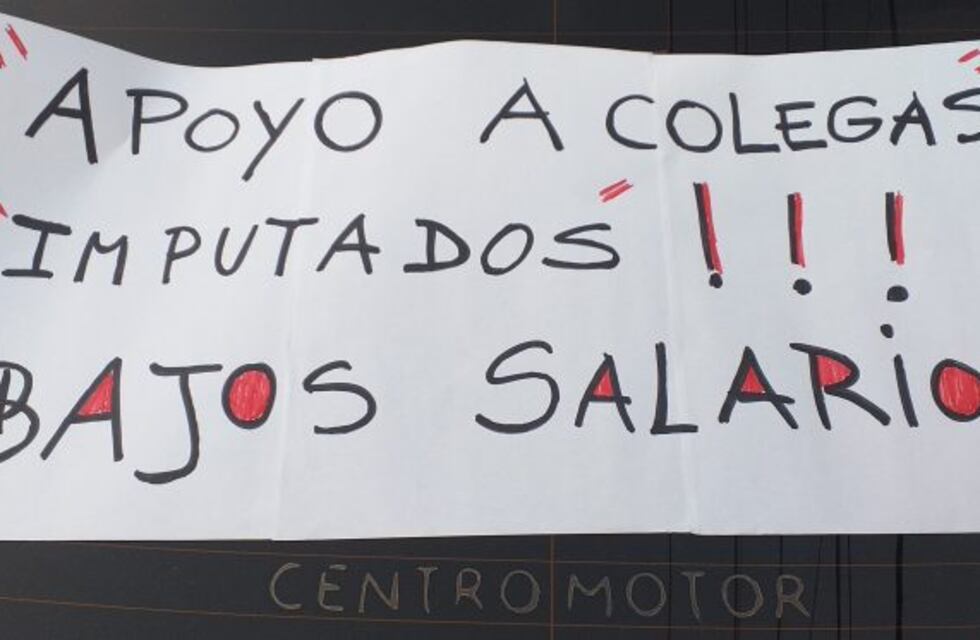 APOYO A COLEGAS
IMPUTADOS !!!
BAJOS SALARIO
CENTROMOTOR